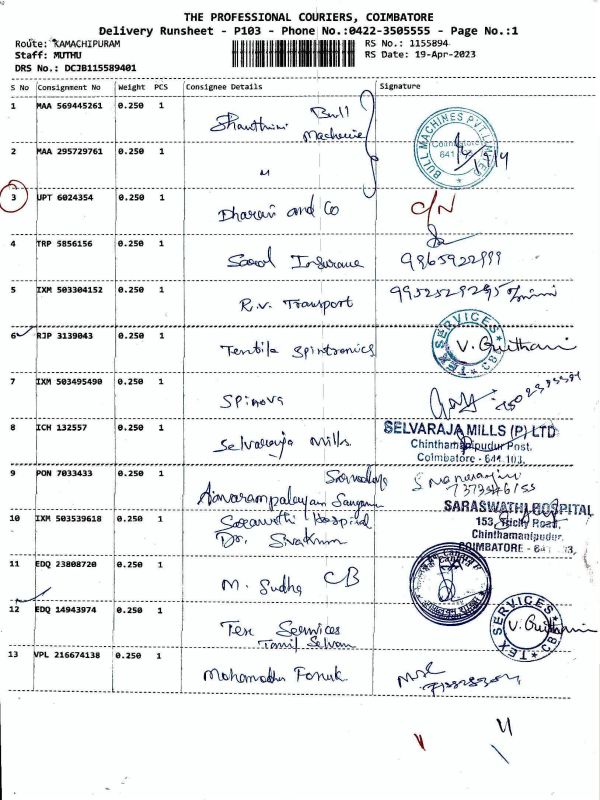 THE PROFESSIONAL COURIERS, COIMBATORE
Delivery Runsheet - P103 - Phone No.:0422-3505555 - Page No.:1
Route: KAMACHIPURAM
RS No.: 1155894
Staff: MUTHU
RS Date: 19-Apr-2023
DRS No.: DCJB115589401
S No Consignment No Weight PCS Consignee Details Signature
1 MAA 569445261 0.250 1 Bull
BULL MACHINES PVT. LIMITED
Coimbatore
641
2 MAA 295729761 0.250 1 "
3 UPT 6024354 0.250 1 Dharani and Co C/N
4 TRP 5856156 0.250 1 Insurance 9965922999
5 IXM 503304152 0.250 1 R.V. Transport
6 RJP 3139043 0.250 1 Spintronics
TEX SERVICES CBE
7 IXM 503495490 0.250 1 Spinova
8 ICH 132557 0.250 1 Selvaraja Mills.
SELVARAJA MILLS (P) LTD
Chinthamanipudur Post.
Coimbatore - 641 103.
9 PON 7033433 0.250 1
10 IXM 503539618 0.250 1 Saraswathi Hospital
Dr. Sivakumar
SARASWATHI HOSPITAL
153, Trichy Road,
Chinthamanipudur,
COIMBATORE - 641 103.
11 EDQ 23808720 0.250 1 M. Sudha CB
12 EDQ 14943974 0.250 1 Tex Services
Tamil Selvan
TEX SERVICES CBE
13 VPL 216674138 0.250 1